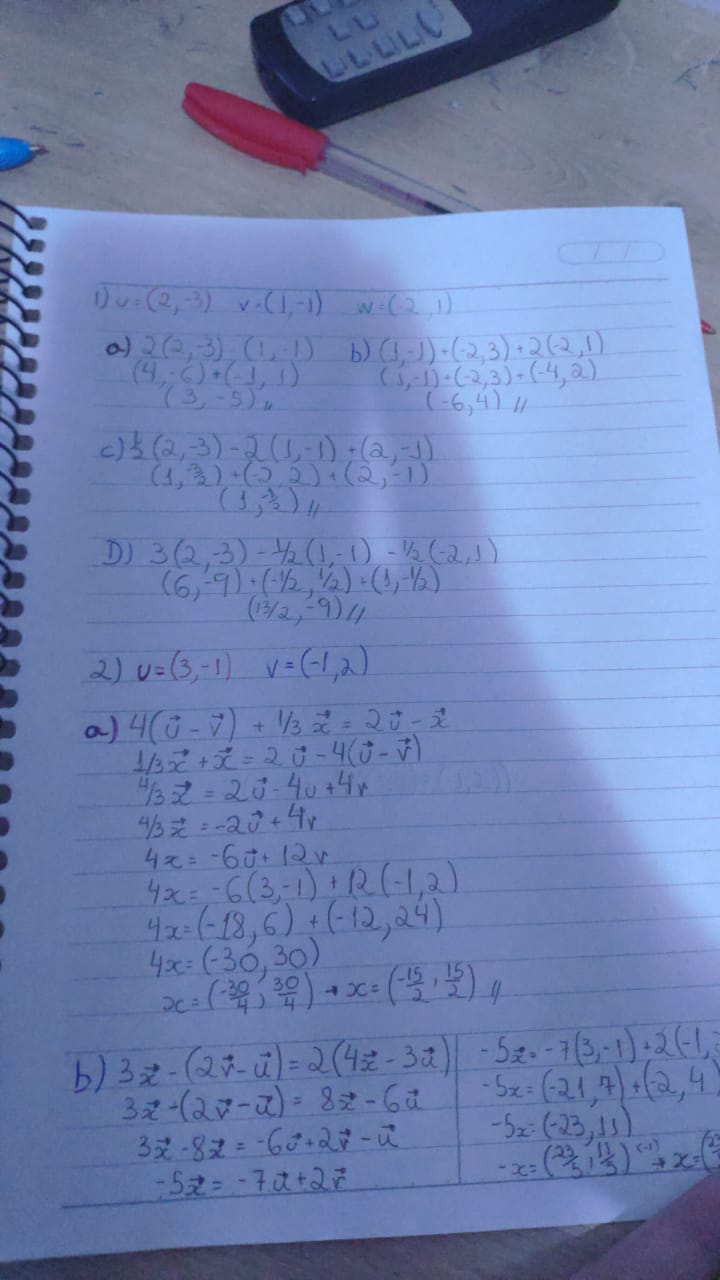 1) u=(2,-3) v=(1,-1) w=(-2,1)
a) 2(2,-3) - (1,-1)
(4,-6)+(-1,1)
(3,-5)//
b) (1,-1)+(-2,3)+2(-2,1)
(1,-1)+(-2,3)+(-4,2)
(-6,4)//
c) 1/2(2,-3)-2(1,-1)+(2,-1)
(1,-3/2)+(-2,2)+(2,-1)
(1,-1/2)//
D) 3(2,-3) - 1/2(1,-1) - 1/2(-2,1)
(6,-9)+(-1/2,1/2)+(1,-1/2)
(13/2,-9)//
2) u=(3,-1) v=(-1,2)
a) 4(u⃗ - v⃗) + 1/3 x⃗ = 2u⃗ - x⃗
1/3x⃗ + x⃗ = 2u⃗ - 4(u⃗ - v⃗)
4/3x⃗ = 2u⃗ - 4u + 4v
4/3x⃗ = -2u⃗ + 4v
4x = -6u⃗ + 12v
4x = -6(3,-1) + 12(-1,2)
4x=(-18,6) + (-12,24)
4x=(-30,30)
x=(-30/4, 30/4) → x=(-15/2, 15/2)//
b) 3x⃗ - (2v⃗ - u⃗) = 2(4x⃗ - 3u⃗)
3x⃗ -(2v⃗ - u⃗) = 8x⃗ - 6u⃗
3x⃗ - 8x⃗ = -6u⃗ + 2v⃗ - u⃗
-5x⃗ = -7u⃗ + 2v⃗
-5x⃗ = -7(3,-1)+2(-1,
-5x=(-21,7)+(-2,4
-5x=(-23,11)
-x=(23/5, 11/5) (-1) → x=(